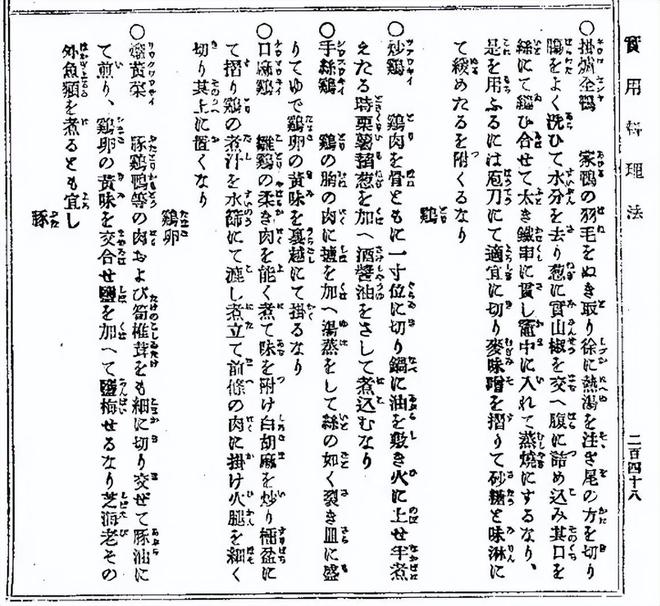 實用料理法
二百四十八
〇掛爐全鴨　家鴨の羽毛をぬき取り徐に熱湯を注ぎ尾の方を切り
腸をよく洗ひて水分を去り葱に實山椒を交へ腹に詰め込み其口を
絲にて縫ひ合せて太き鐵串に貫し竈中に入れて蒸燒にするなり、
是を用ふるには庖刀にて適宜に切り麥味噌を摺りて砂糖と味淋に
て緩めたるを附くるなり
鷄
〇炒鷄　鷄肉を骨ともに一寸位に切り鍋に油を敷き火に上せ半煮
えたる時栗薯蕷葱を加へ酒醬油をさして煮込むなり
〇手絲鷄　鷄の胸の肉に鹽を加へ湯蒸をして絲の如く裂き皿に盛
りてゆで鷄卵の黃味を裏越にて掛るなり
〇口麻鷄　雛鷄の柔き肉を能く煮て味を附け白胡麻を炒り擂盆に
て摺り鷄の煮汁を水篩にて漉し煮立て前條の肉に掛け火腿を細く
切り其上に置くなり
鷄卵
〇溜黃菜　豚鷄鴨等の肉および筍椎茸をも細に切り交ぜて豚油に
て煎り、鷄卵の黃味を交合せ鹽を加へて鹽梅せるなり芝海老その
外魚類を煮るとも宜し
豚